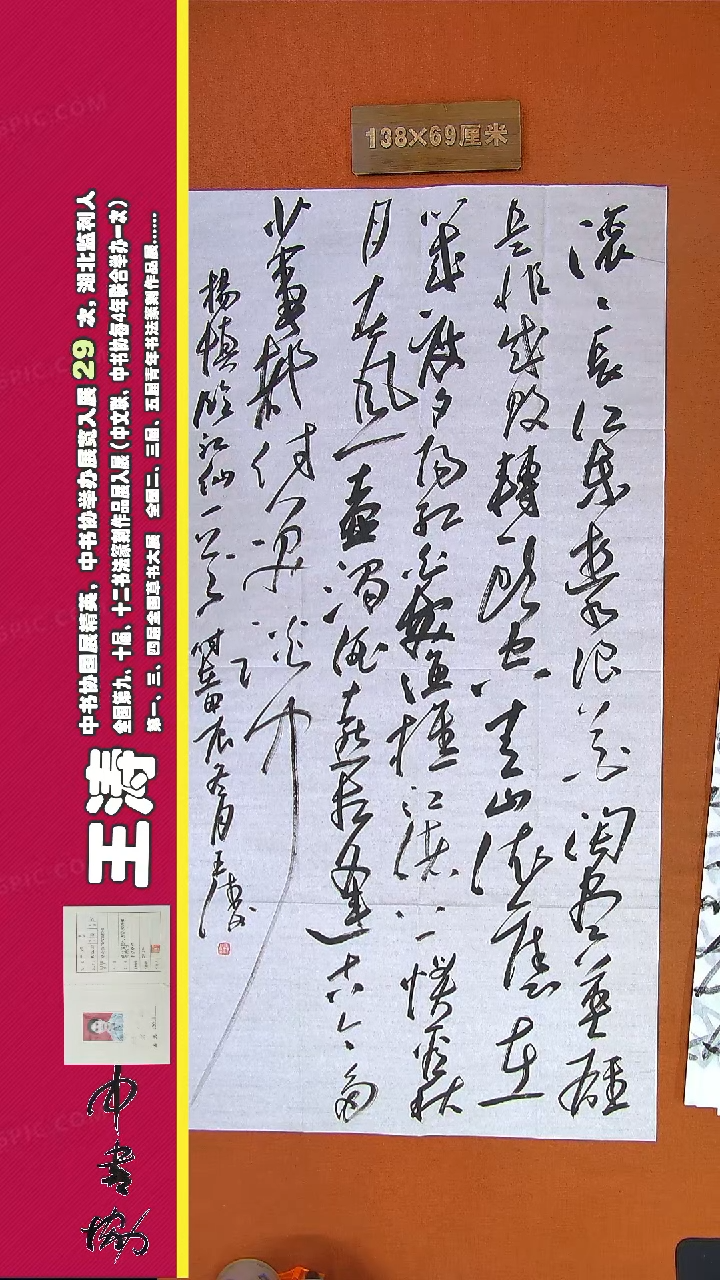 138×69厘米
滚〻長江東逝水浪花淘盡英雄
是非成敗轉頭空青山依舊在
幾度夕陽紅白髮漁樵江渚上慣看秋
月春風一壺濁酒喜相逢古今多
少事都付笑談中
楊慎臨江仙一首 時甲辰冬月王濤書
中书协国展精英，中书协举办展览入展 29 次，湖北监利人
全国第九、十届、十二书法篆刻作品展入展（中文联、中书协每4年联合举办一次）
第一、三、四届全国草书大展 全国二、三届、五届青年书法篆刻作品展......
王涛
中書協